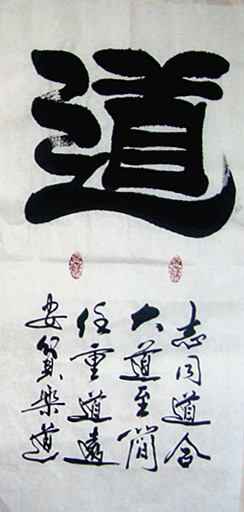 道
志同道合
大道至简
任重道远
安貧樂道